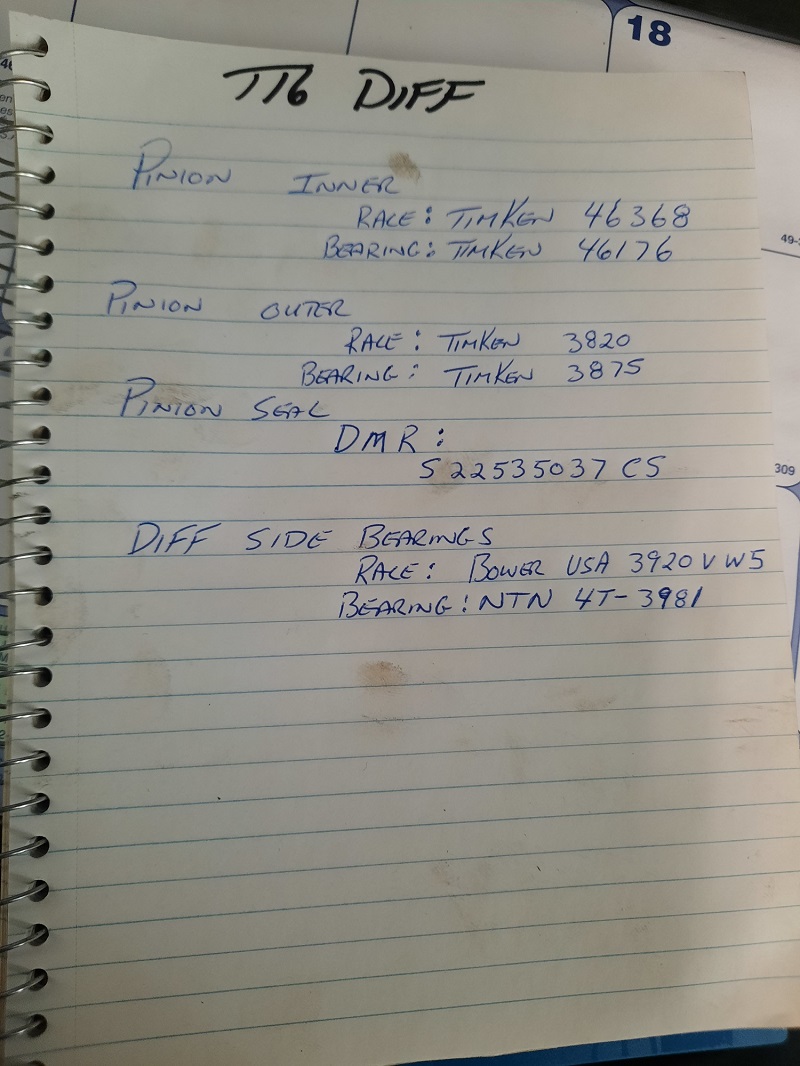 18
T76 DIFF
PINION INNER
RACE: TIMKEN 46368
BEARING: TIMKEN 46176
PINION OUTER
RACE: TIMKEN 3820
BEARING: TIMKEN 3875
PINION SEAL
DMR:
S 22535037 CS
DIFF SIDE BEARINGS
RACE: BOWER USA 3920 V W5
BEARING: NTN 4T-3981
309